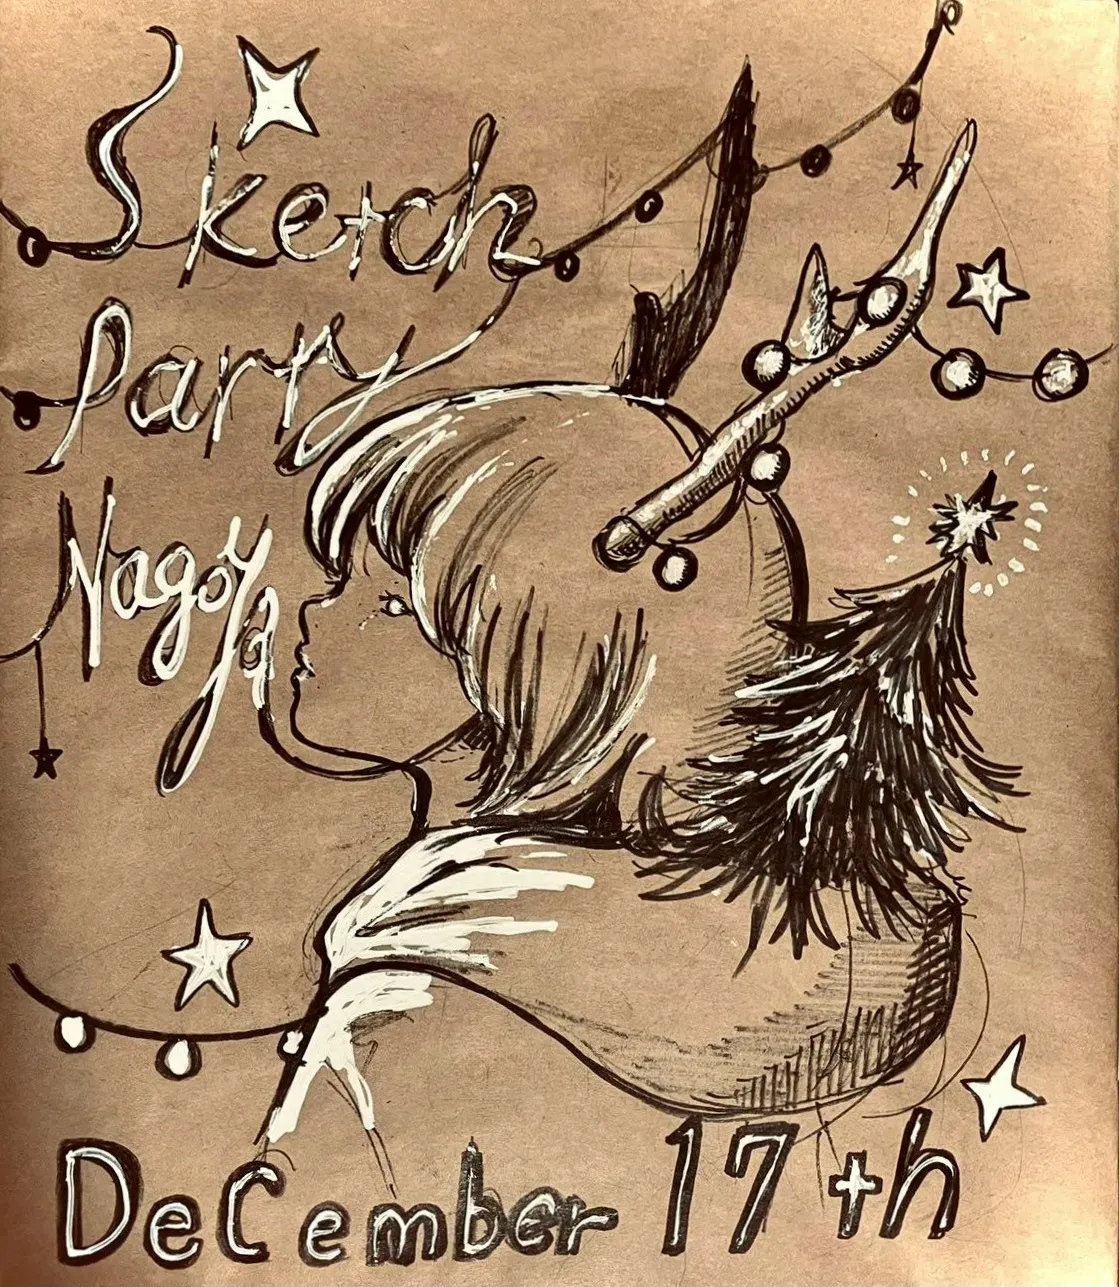 Sketch
Party
Nagoya
DeCember 17th